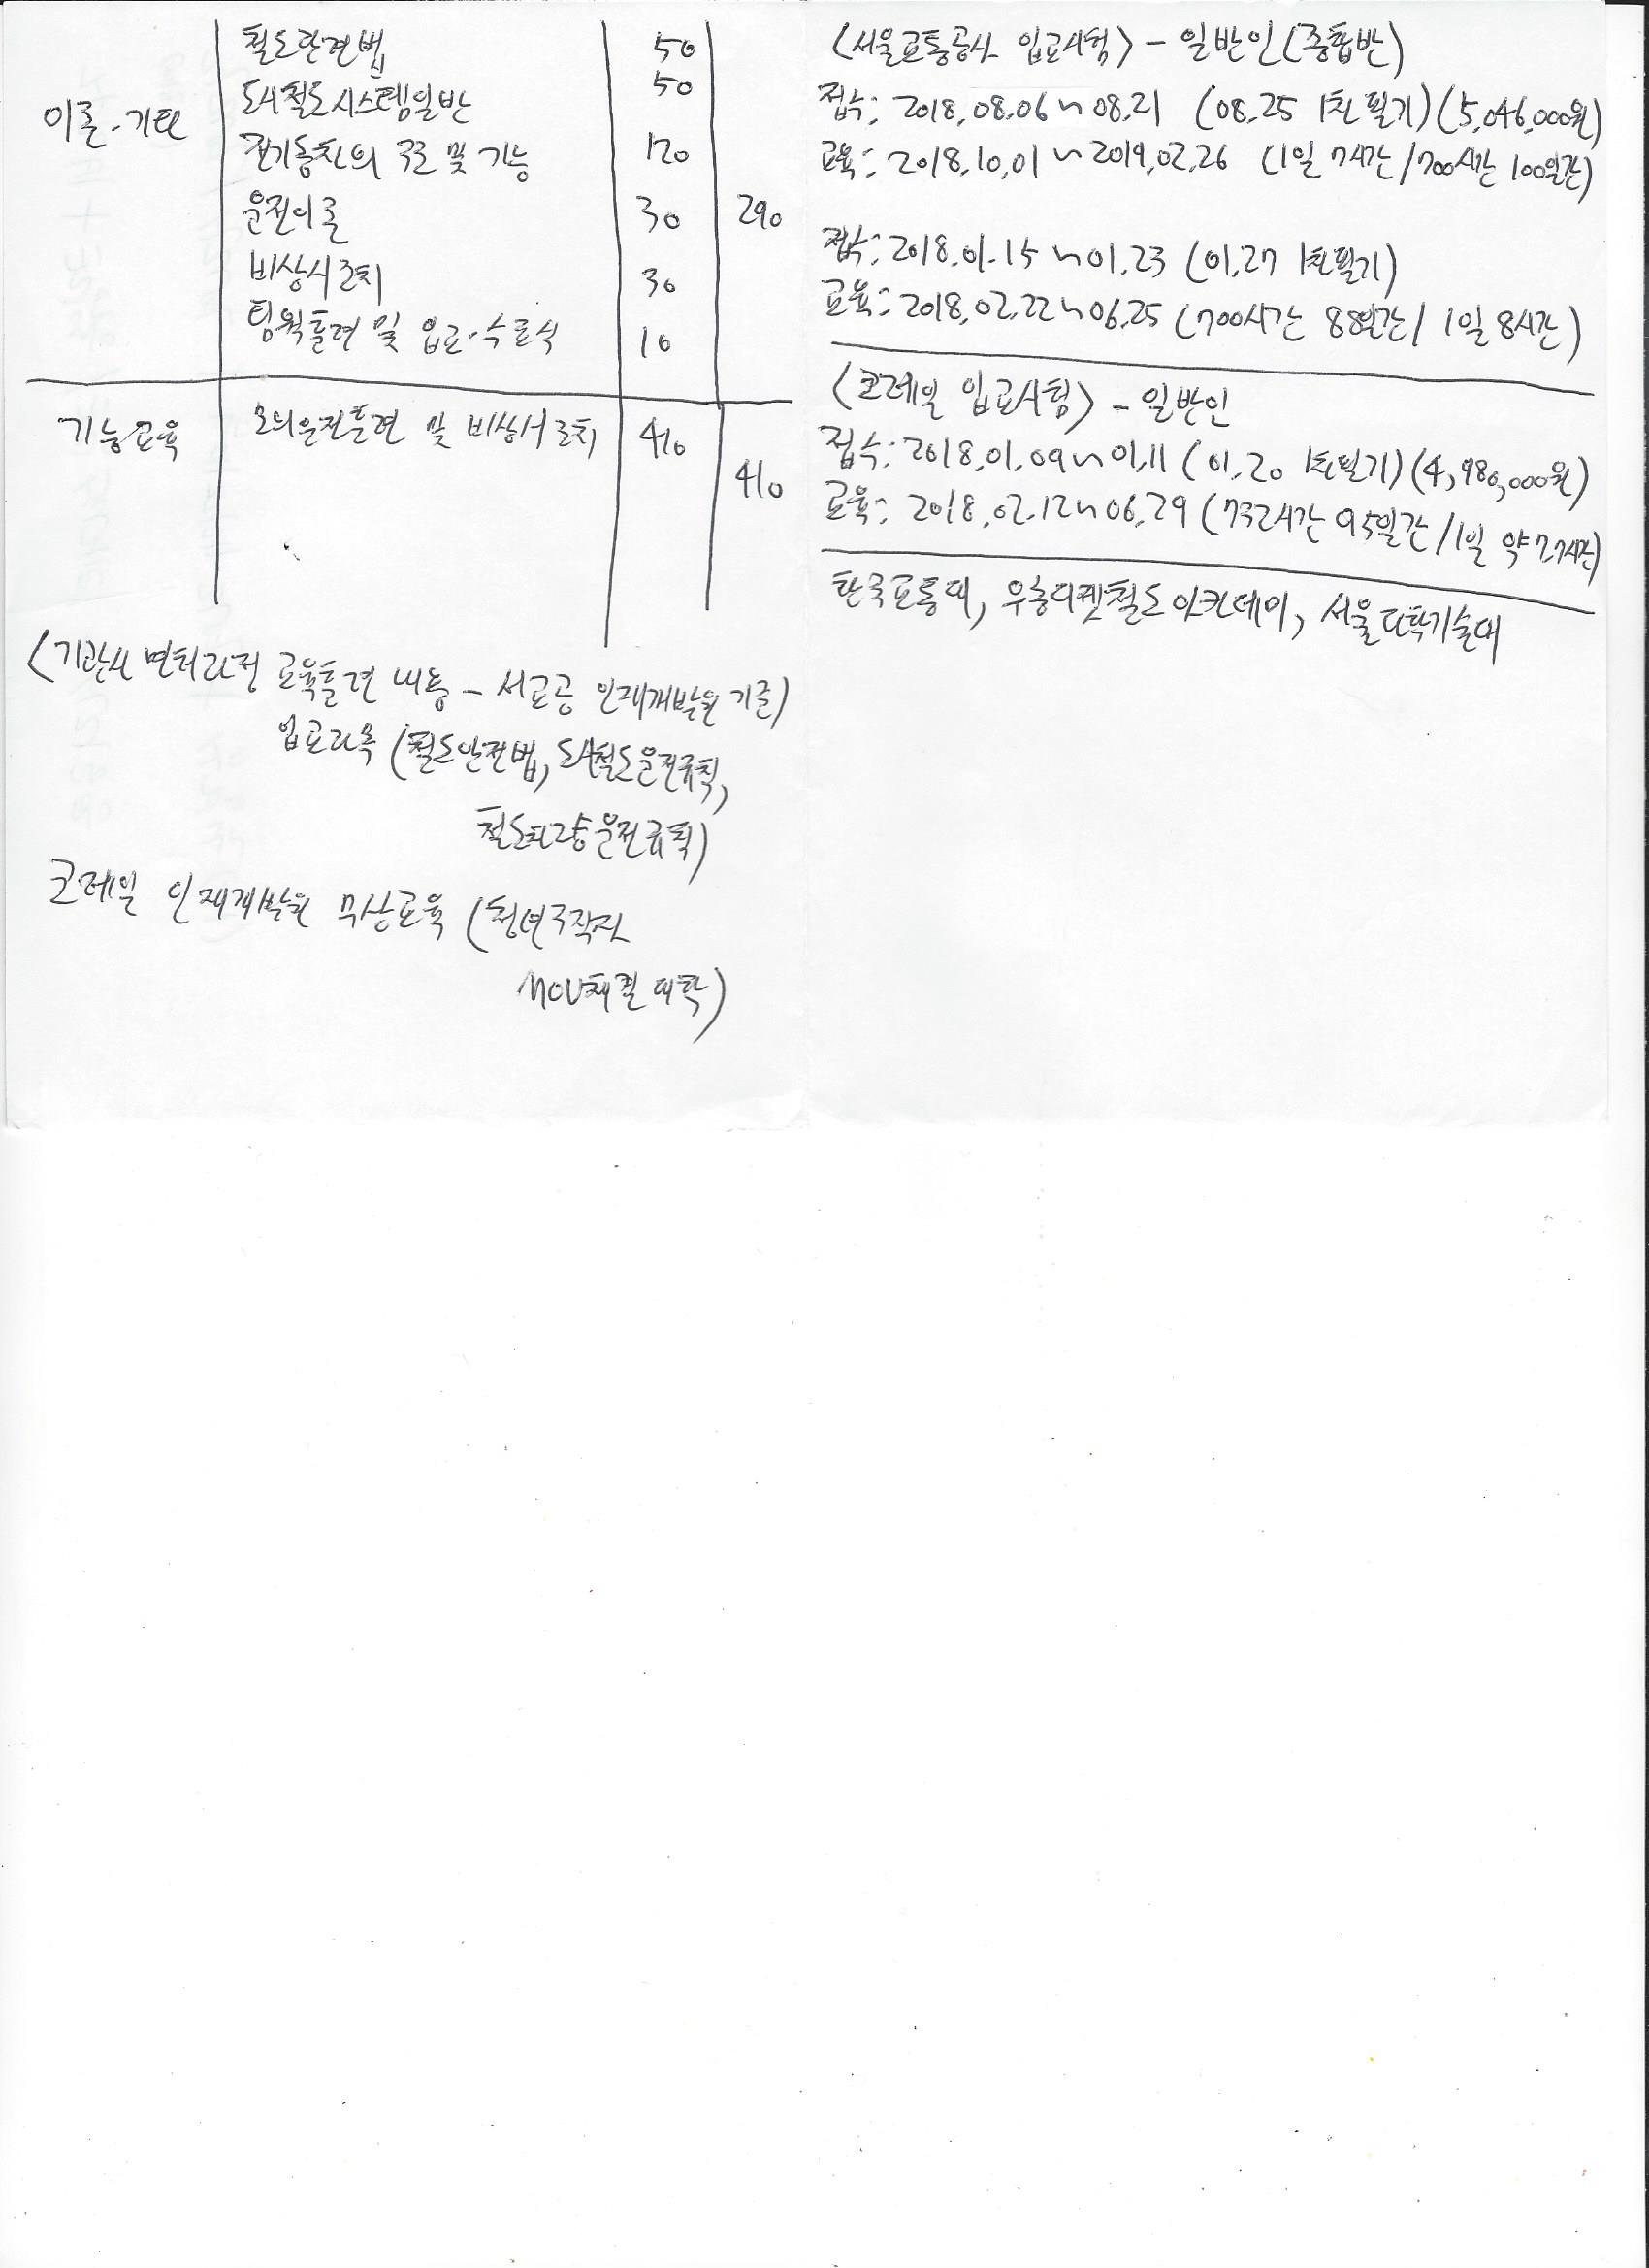 철도관련법 50
도시철도시스템일반 50
이론·기타
전기동차의 구조 및 기능 120
운전이론 30 290
비상시조치 30
팀웍훈련 및 입교·수료식 10
기능교육 모의운전훈련 및 비상시조치 410
410
(기관사 면허과정 교육훈련 내용 - 서교공 인재개발원 기준)
입교과목 (철도안전법, 도시철도운전규칙,
철도차량운전규칙)
코레일 인재개발원 무상교육 (청년구직자
MOU체결 대학)
<서울교통공사 입교시험> - 일반인(종합반)
접수: 2018.08.06 ~ 08.21 (08.25 1차 필기) (5,046,000원)
교육: 2018.10.01 ~ 2019.02.26 (1일 7시간/700시간 100일간)
접수: 2018.01.15 ~ 01.23 (01.27 1차필기)
교육: 2018.02.22 ~ 06.25 (700시간 88일간/ 1일 8시간)
<코레일 입교시험> - 일반인
접수: 2018.01.09 ~ 01.11 (01.20 1차필기) (4,980,000원)
교육: 2018.02.12 ~ 06.29 (732시간 95일간/1일 약 7.7시간)
한국교통대, 우송디젯철도아카데미, 서울과학기술대